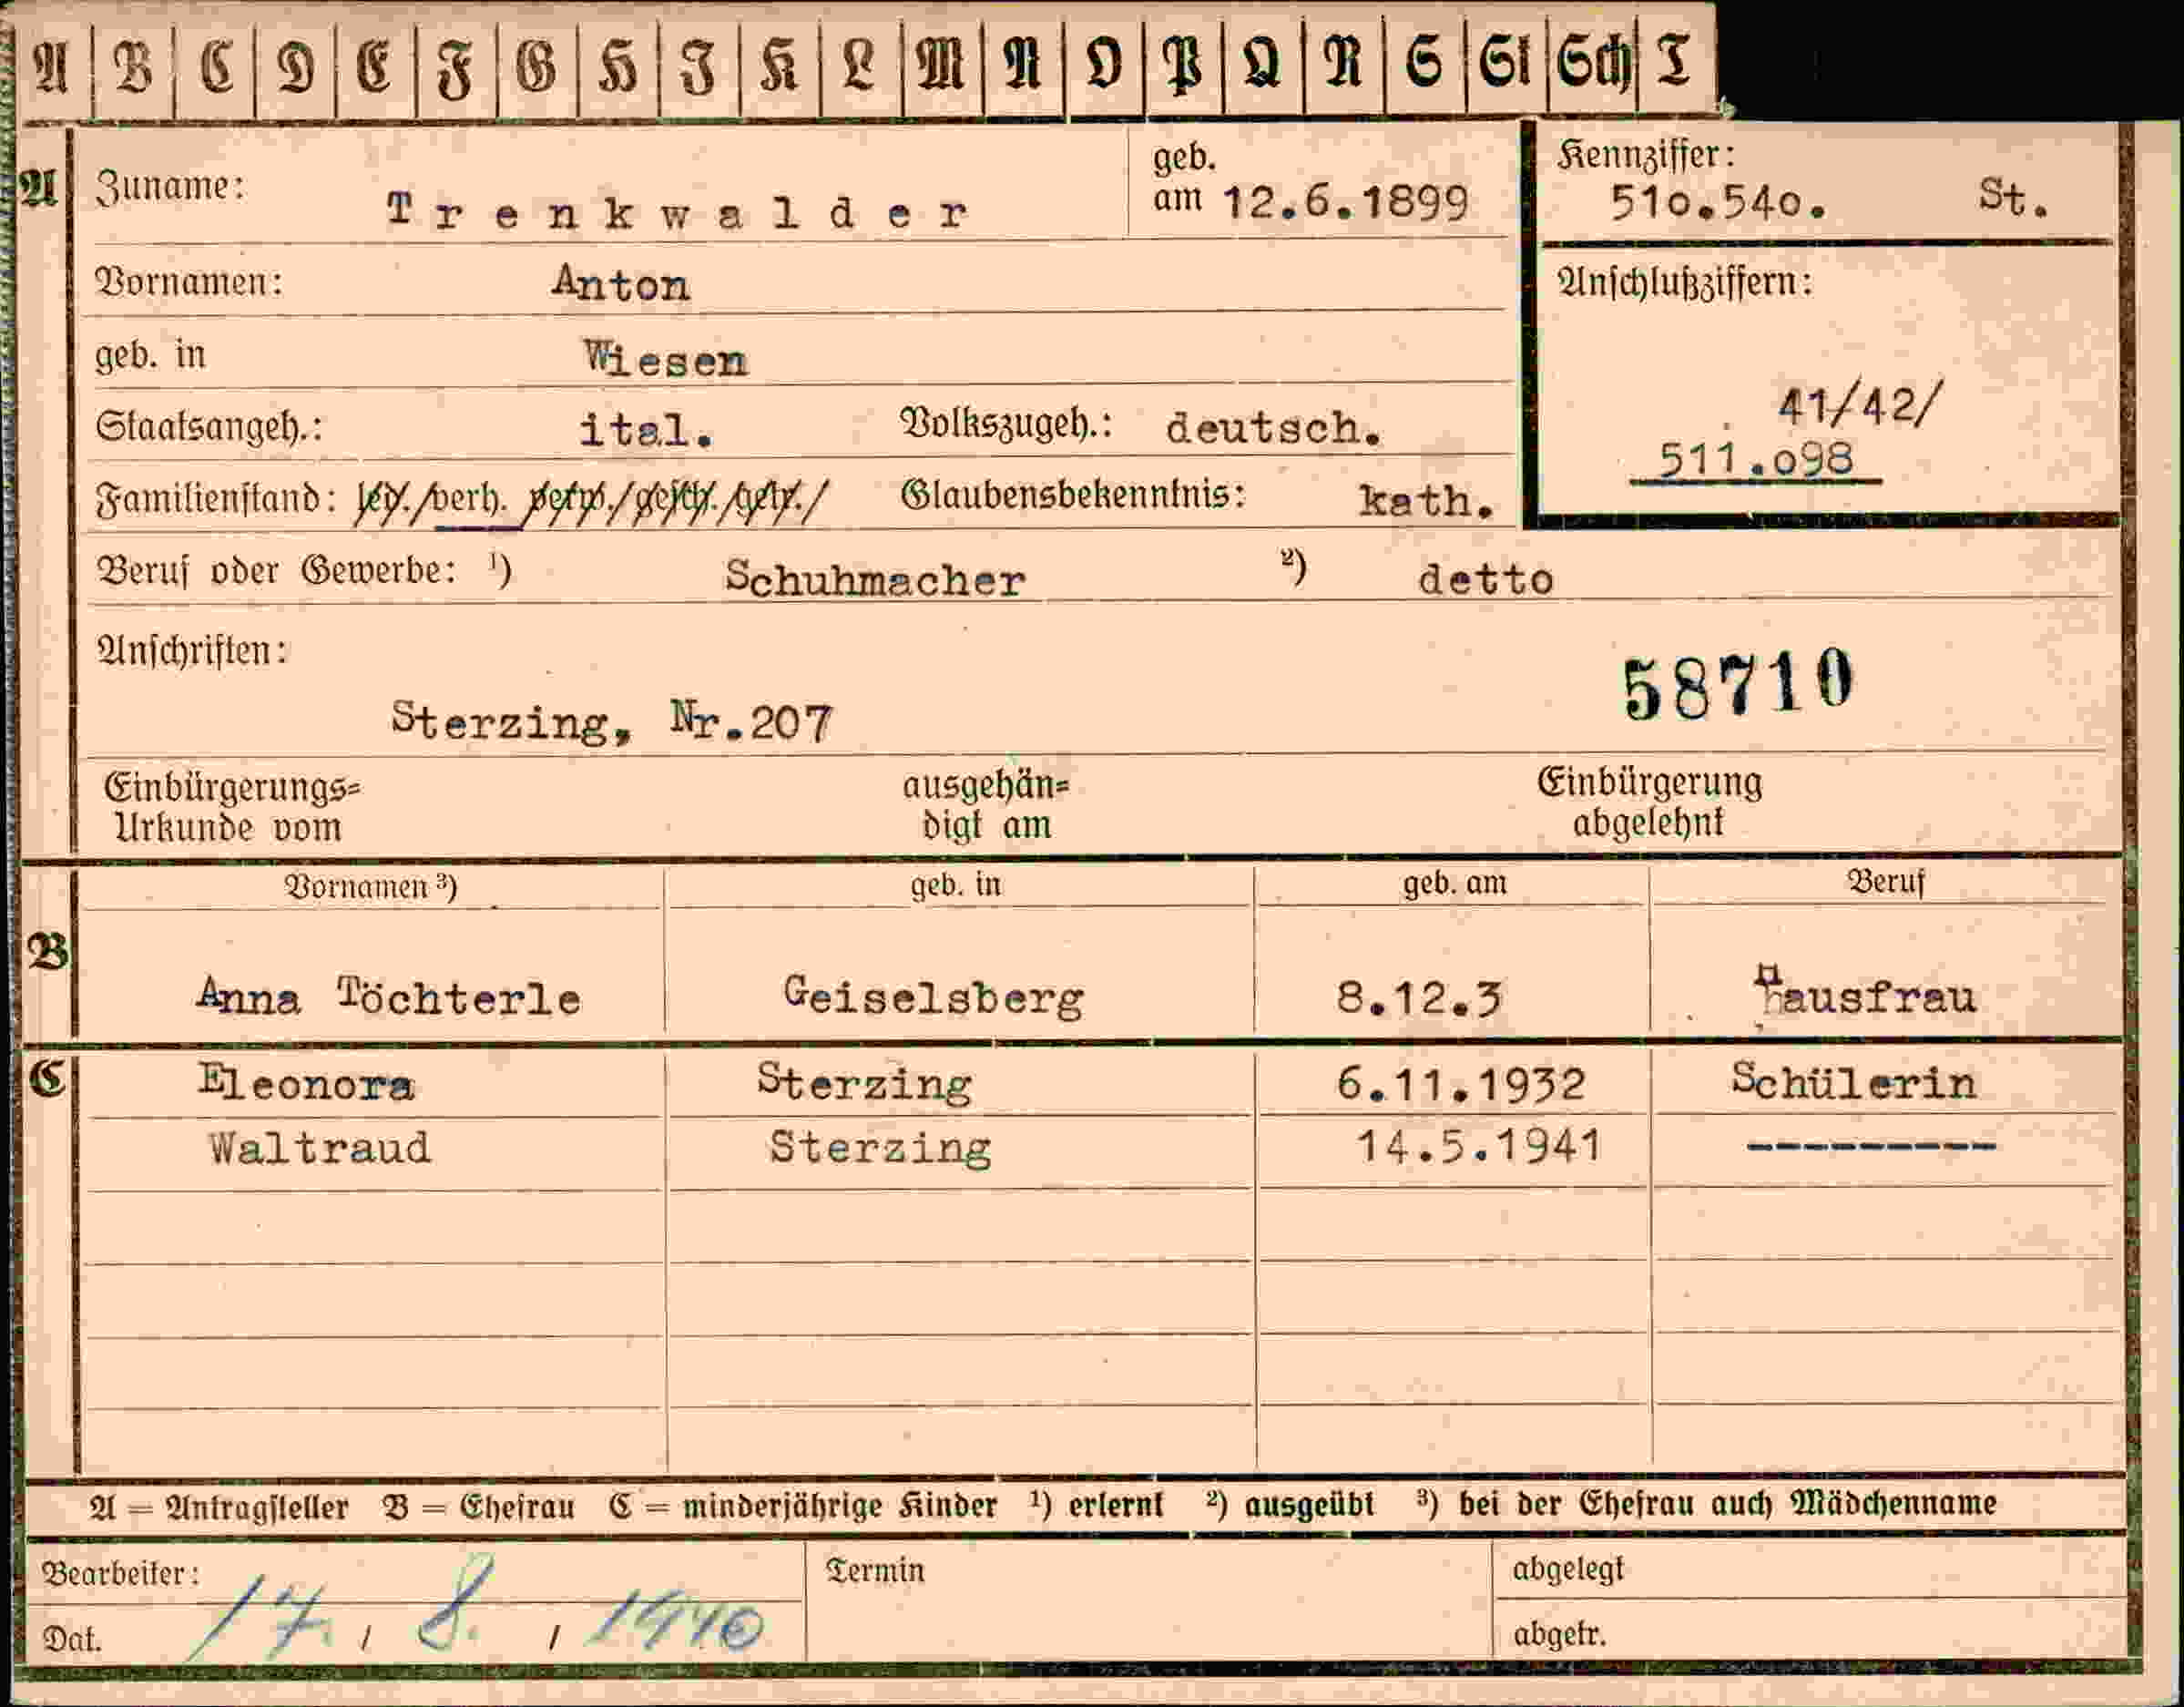 A B C D E F G H I K L M N O P Q R S St Sch T
A Zuname: Trenkwalder geb. am 12.6.1899
Kennziffer: 510.540. St.
Vornamen: Anton
Anschlußziffern:
geb. in Wiesen
41/42/
511.098
Staatsangeh.: ital. Volkszugeh.: deutsch.
Familienstand: led./verh. getr./gesch./ Glaubensbekenntnis: kath.
Beruf oder Gewerbe: ¹) Schuhmacher ²) detto
Anschriften:
58710
Sterzing, Nr.207
Einbürgerungs= ausgehän= Einbürgerung
Urkunde vom digt am abgelehnt
Vornamen ³) geb. in geb. am Beruf
B Anna Töchterle Geiselsberg 8.12.3 Hausfrau
C Eleonora Sterzing 6.11.1932 Schülerin
Waltraud Sterzing 14.5.1941 ---------
A = Antragsteller B = Ehefrau C = minderjährige Kinder ¹) erlernt ²) ausgeübt ³) bei der Ehefrau auch Mädchenname
Bearbeiter: Termin abgelegt
Dat. 17. / 8. / 1940 abgetr.